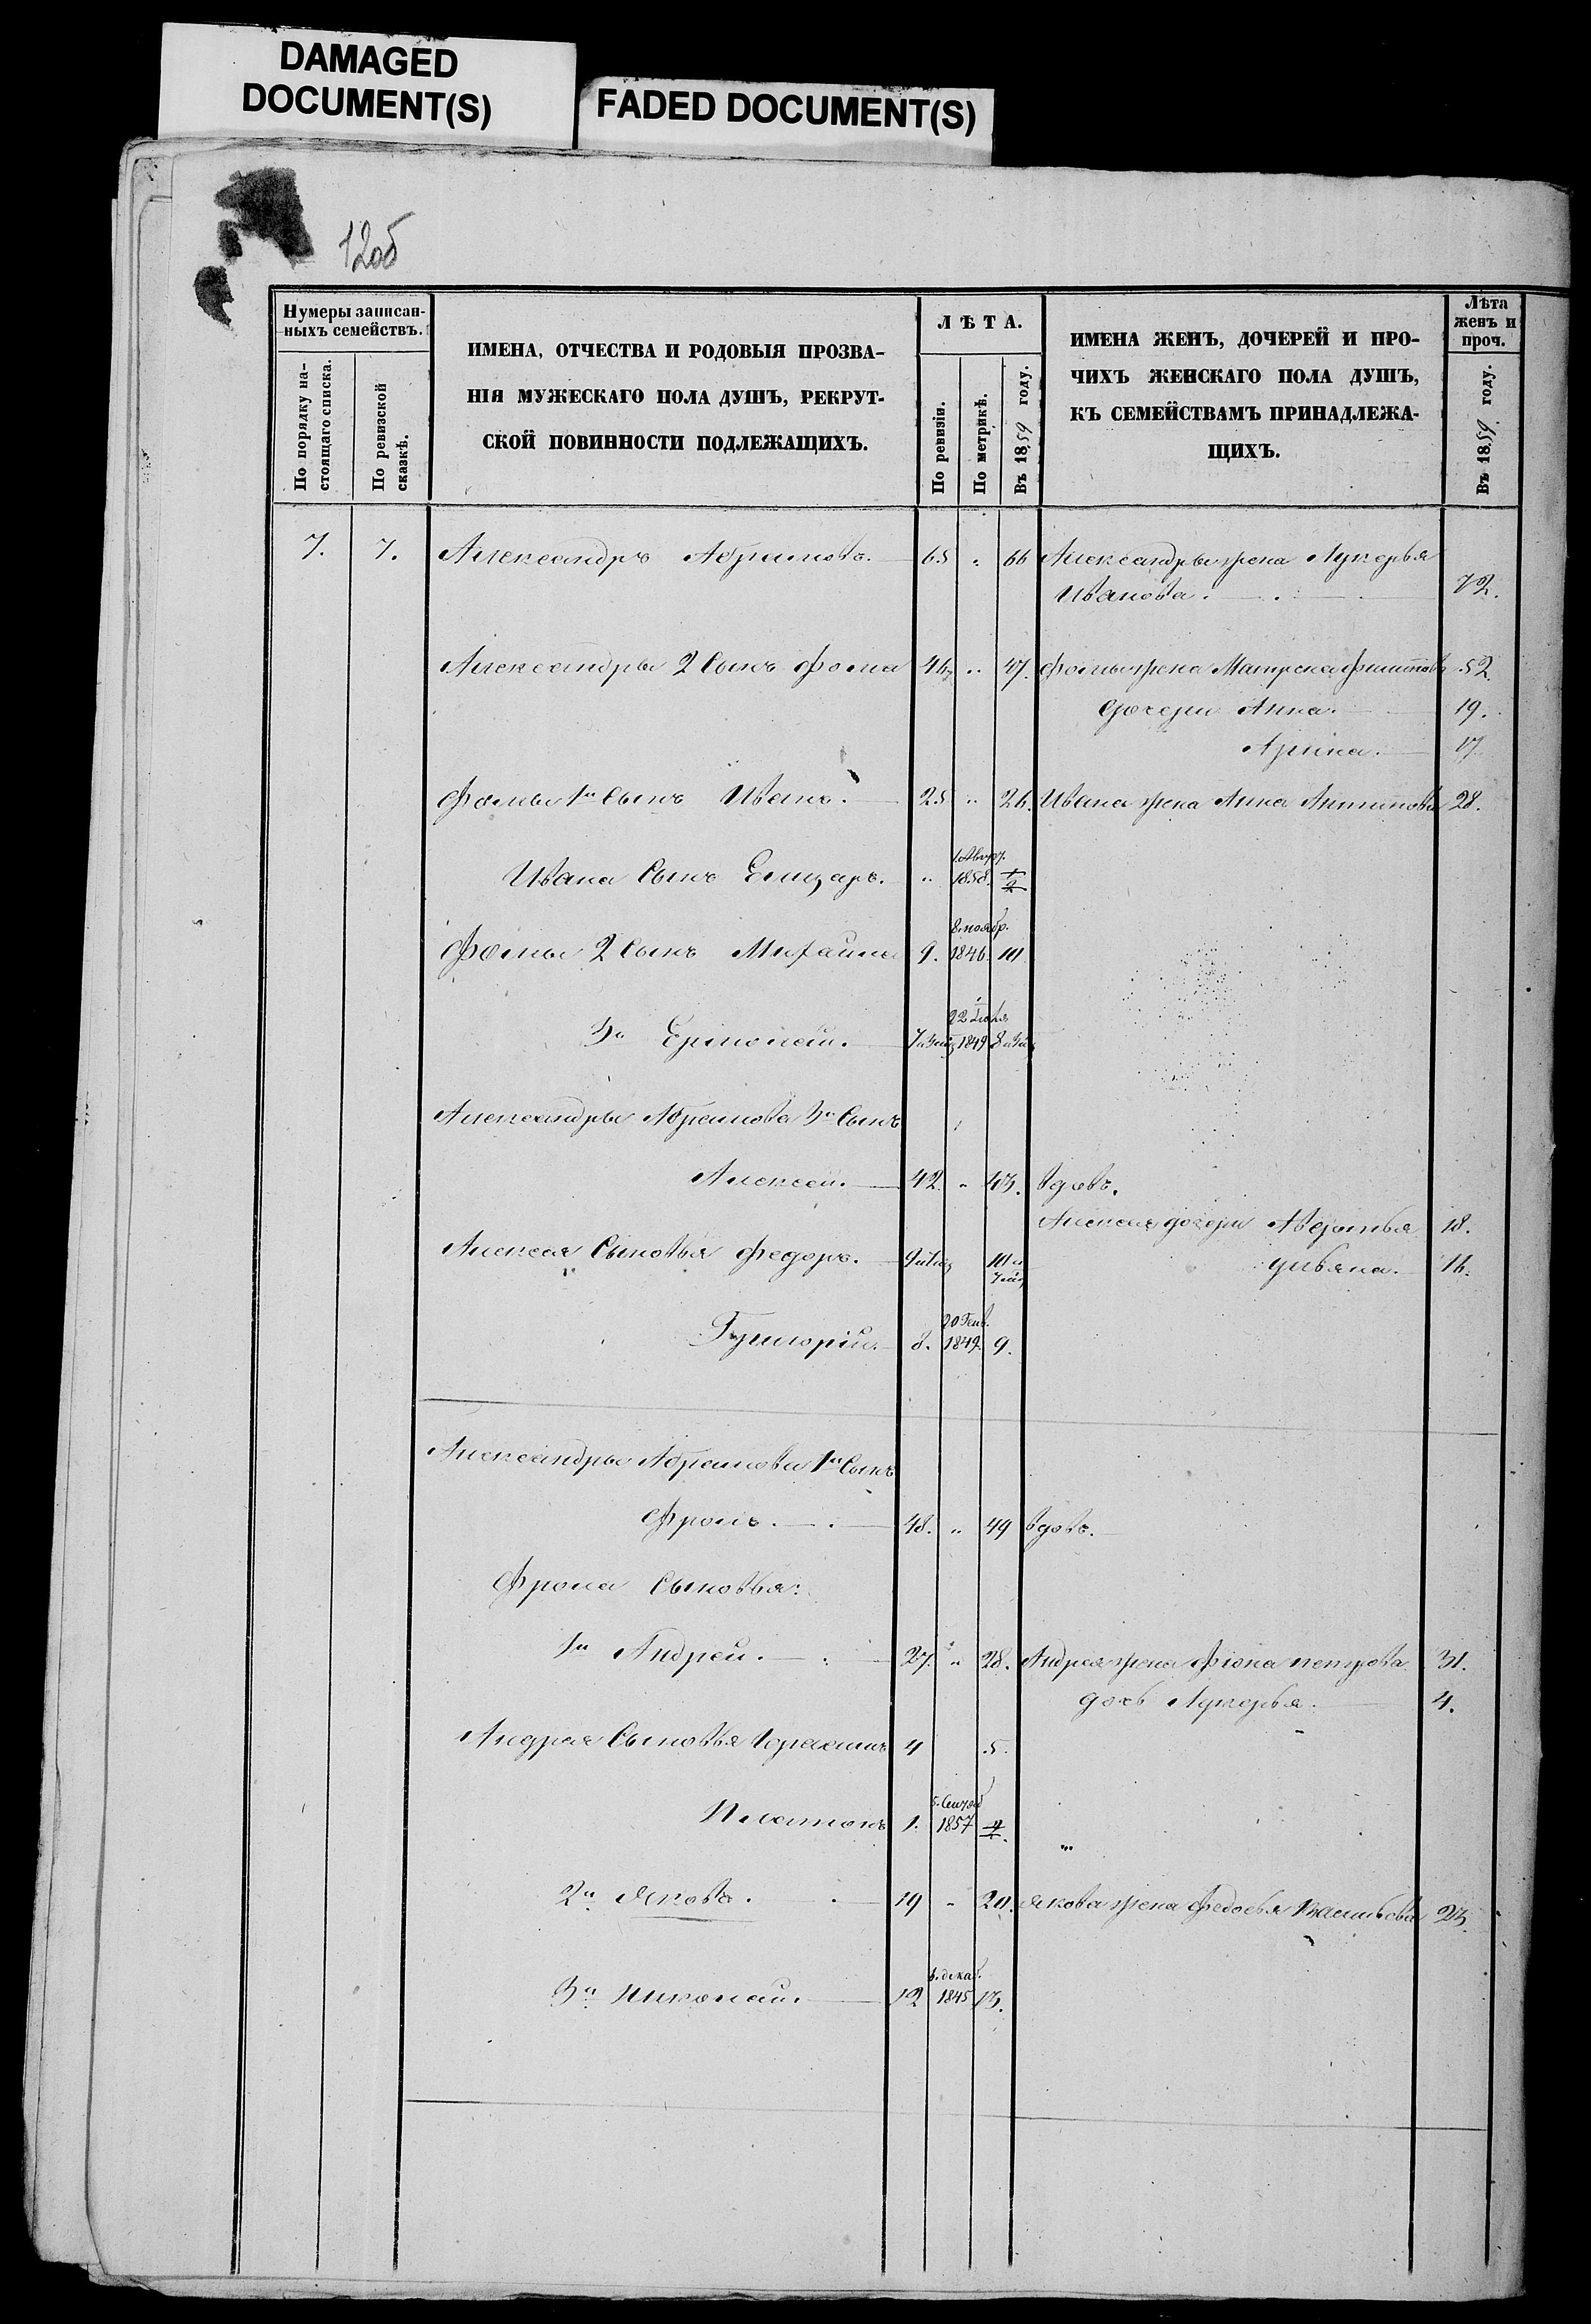 DAMAGED
DOCUMENT(S)
FADED DOCUMENT(S)
12об
Нумеры записан-
ныхъ семействъ.
По порядку на-
стоящаго списка.
По ревизской
сказкѣ.
ИМЕНА, ОТЧЕСТВА И РОДОВЫЯ ПРОЗВА-
НІЯ МУЖЕСКАГО ПОЛА ДУШЪ, РЕКРУТ-
СКОЙ ПОВИННОСТИ ПОДЛЕЖАЩИХЪ.
ЛѢТА.
По ревизіи.
По метрикѣ.
Въ 1859 году.
ИМЕНА ЖЕНЪ, ДОЧЕРЕЙ И ПРО-
ЧИХЪ ЖЕНСКАГО ПОЛА ДУШЪ,
КЪ СЕМЕЙСТВАМЪ ПРИНАДЛЕЖА-
ЩИХЪ.
Лѣта
женъ и
проч.
Въ 1859 году.
7. 7. Александръ Абрамовъ. 65 " 66 Александры жена Лукерья
Иванова. 72.
Александры 2 Сынъ Фома 46 " 47. Фомы жена Матрена 52.
Дочери Анна. 19.
Арина. 17
Фомы 1й Сынъ Иванъ. 25 " 26. Ивана жена Анна Антипова 28.
Ивана Сынъ Елизаръ. " 1858.
8. ноябр.
Фомы 2 Сынъ Михаила 9. 1846. 10
22
3й Ермолай. 1849
Александры Абрамова 3й Сынъ
Алексей. 42. " 43. вдовъ.
Алексея дочери Авдотья 18.
Алексея Сыновья Федоръ. Ульяна. 16.
20 Генв.
Григорій. 8. 1849. 9.
Александры Абрамова 1й Сынъ
Фролъ. 48. " 49 вдовъ.
Фрола Сыновья:
1й Андрей. 27. " 28. Андрея жена Фіона петрова 31.
дочь Лукерья. 4.
Андрея Сыновья 4 5.
5. Сентяб
Платонъ 1. 1857
2й Яковъ. 19 " 20. Якова жена Федосья Васильева 23.
6. декаб.
3й Николай. 12 1845 13.